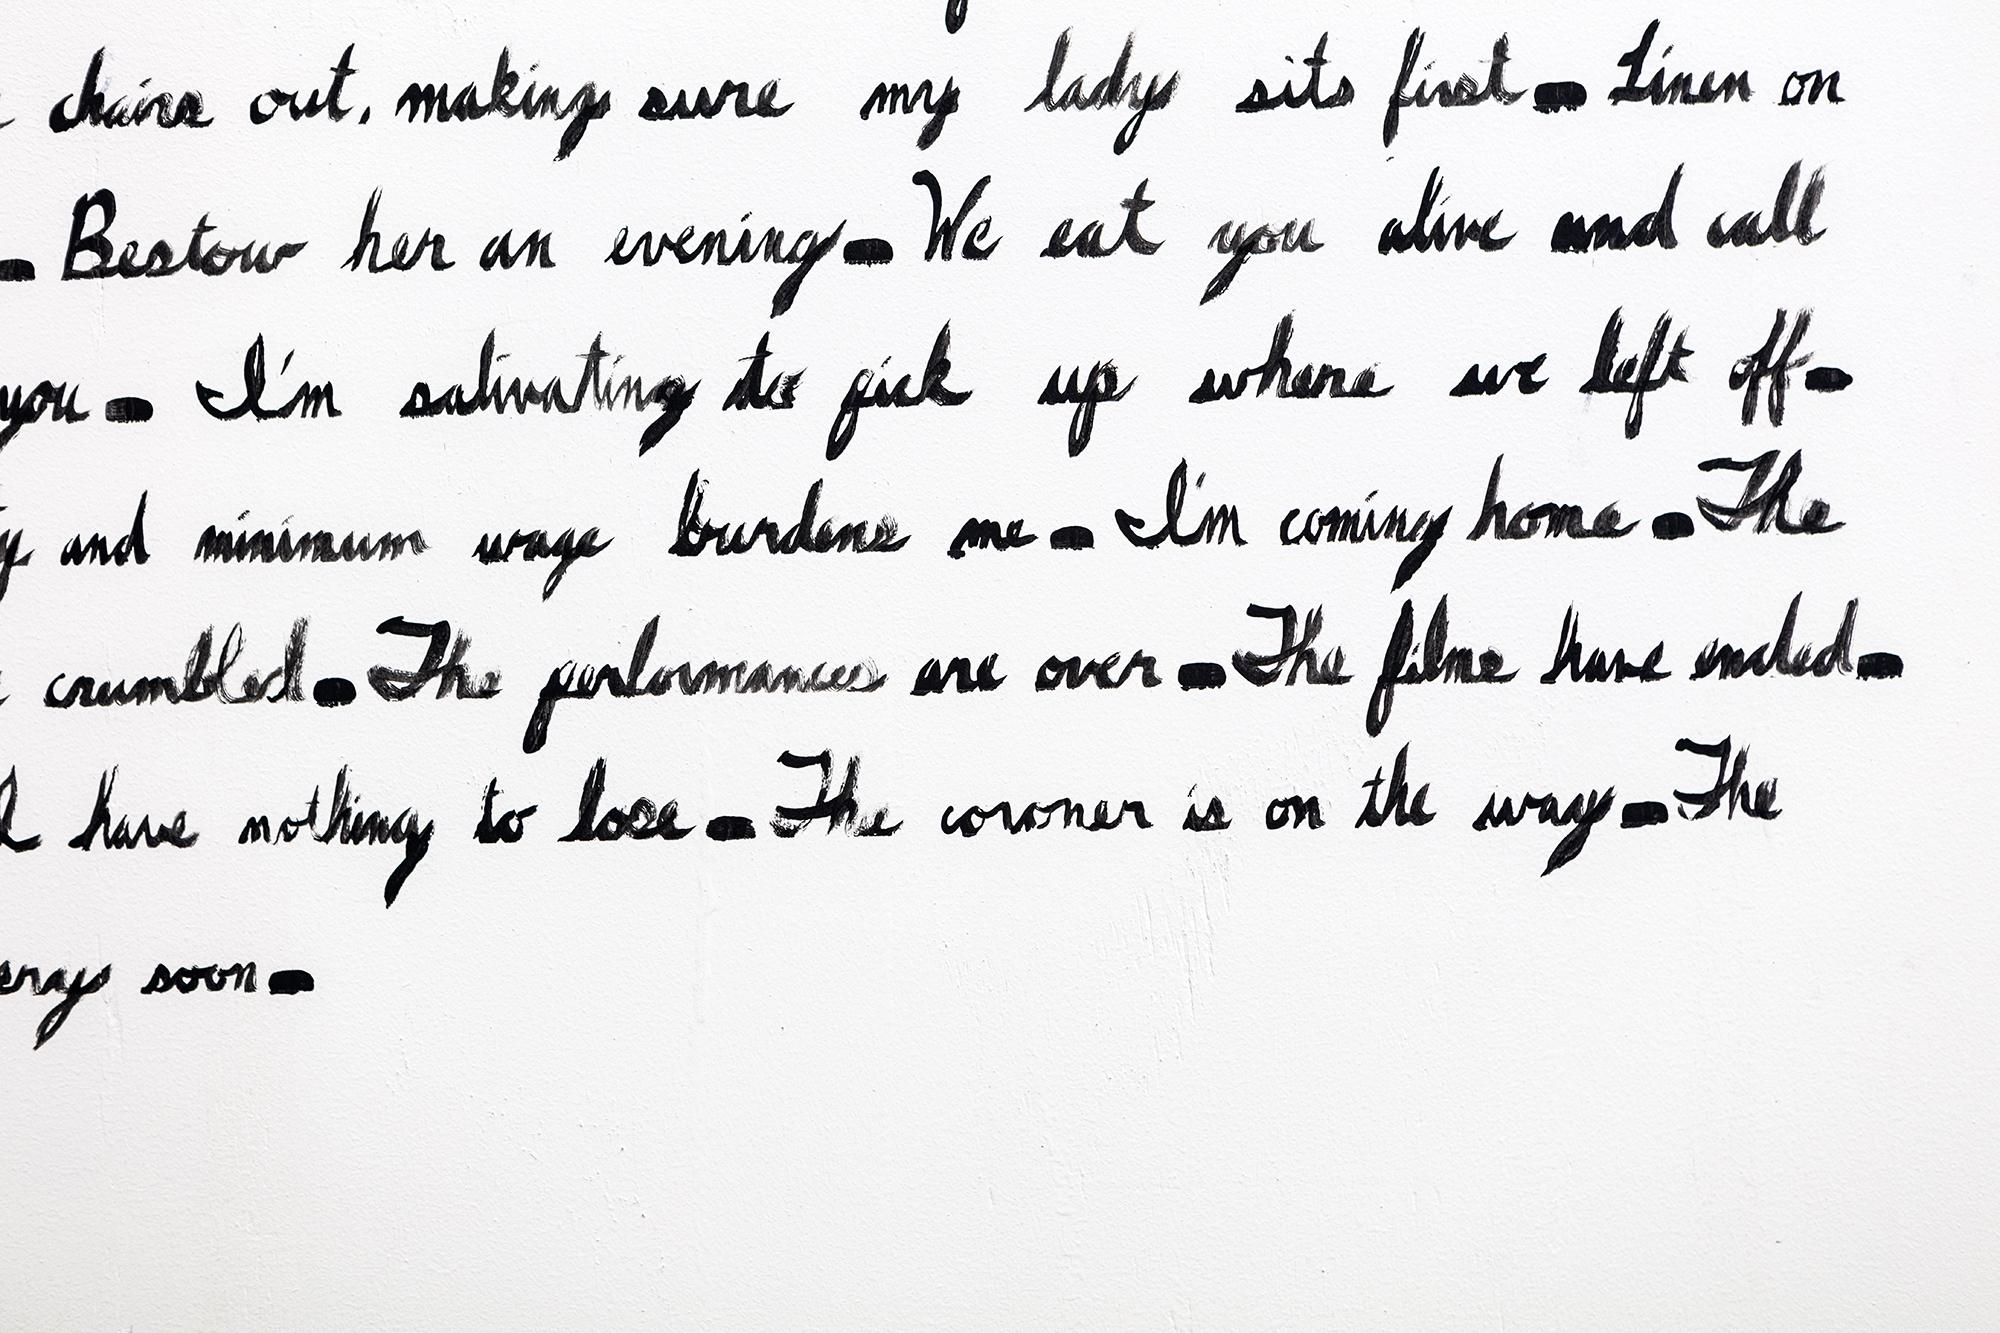 chairs out, making sure my lady sits first. Linen on
. Bestow her an evening. We eat you alive and call
you. I'm salivating to pick up where we left off.
and minimum wage burdens me. I'm coming home. The
crumbled. The performances are over. The films have ended.
I have nothing to lose. The coroner is on the way. The
soon.